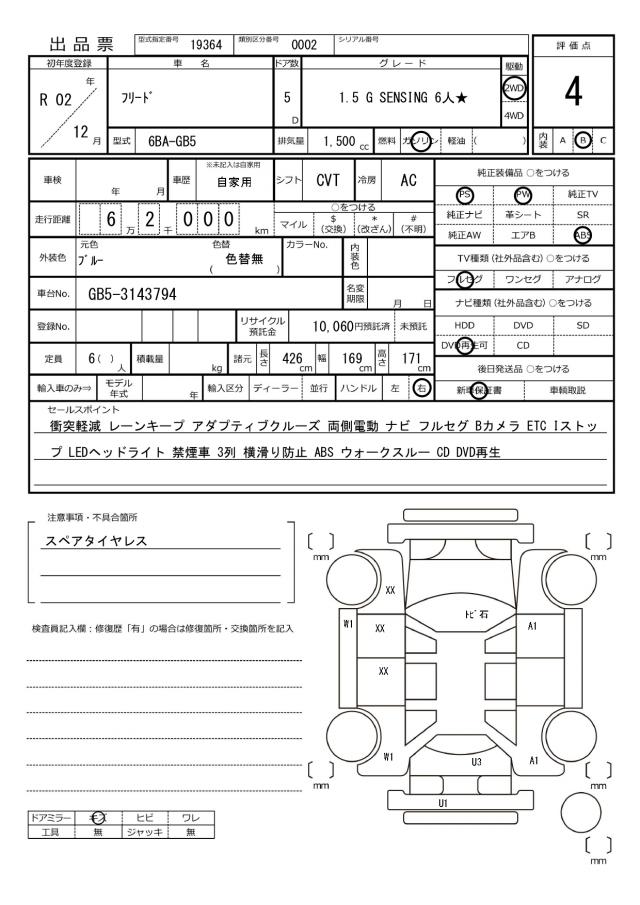 出品票
型式指定番号 19364 類別区分番号 0002 シリアル番号
初年度登録 車名 ドア数 グレード 駆動 評価点
R 02 年 12 月 フリード 5 D 1.5 G SENSING 6人★ 2WD 4WD 4
型式 6BA-GB5 排気量 1,500 cc 燃料 ガソリン 軽油 ( ) 内装 A B C
車検 年 月 車歴 ※未記入は自家用 自家用 シフト CVT 冷房 AC
走行距離 6 2 万 千 0 0 0 km ○をつける マイル $(交換) *(改ざん) #(不明)
外装色 元色 ブルー 色替 ( 色替無 ) カラーNo. 内装色
車台No. GB5-3143794 名変期限 月 日
登録No. リサイクル預託金 10,060円預託済 未預託
定員 6( )人 積載量 kg 諸元 長さ 426 cm 幅 169 cm 高さ 171 cm
輸入車のみ⇒ モデル年式 年 輸入区分 ディーラー 並行 ハンドル 左 右
純正装備品 ○をつける
PS PW 純正TV
純正ナビ 革シート SR
純正AW エアB ABS
TV種類 (社外品含む) ○をつける
フルセグ ワンセグ アナログ
ナビ種類 (社外品含む) ○をつける
HDD DVD SD
DVD再生可 CD
後日発送品 ○をつける
新車保証書 車輌取説
セールスポイント
衝突軽減 レーンキープ アダプティブクルーズ 両側電動 ナビ フルセグ Bカメラ ETC Iストッ
プ LEDヘッドライト 禁煙車 3列 横滑り防止 ABS ウォークスルー CD DVD再生
注意事項・不具合箇所
スペアタイヤレス
検査員記入欄:修復歴「有」の場合は修復箇所・交換箇所を記入
ドアミラー キズ ヒビ ワレ
工具 無 ジャッキ 無
mm mm
XX
トビ石
W1 XX A1
XX
W1 U3 A1
mm mm
U1
mm